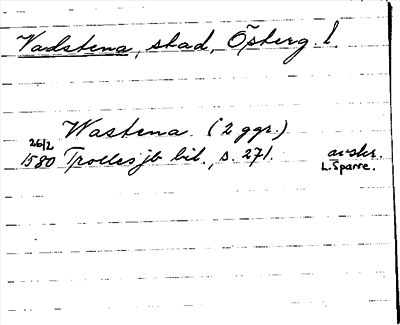 Vadstena, stad, Österg. l.
Wastena. (2 ggr.)
26/2
1580 Trolles jb bil., s. 271. avskr.
L. Sparre.